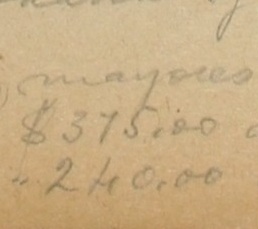 mayores
$375.00
" 240.00